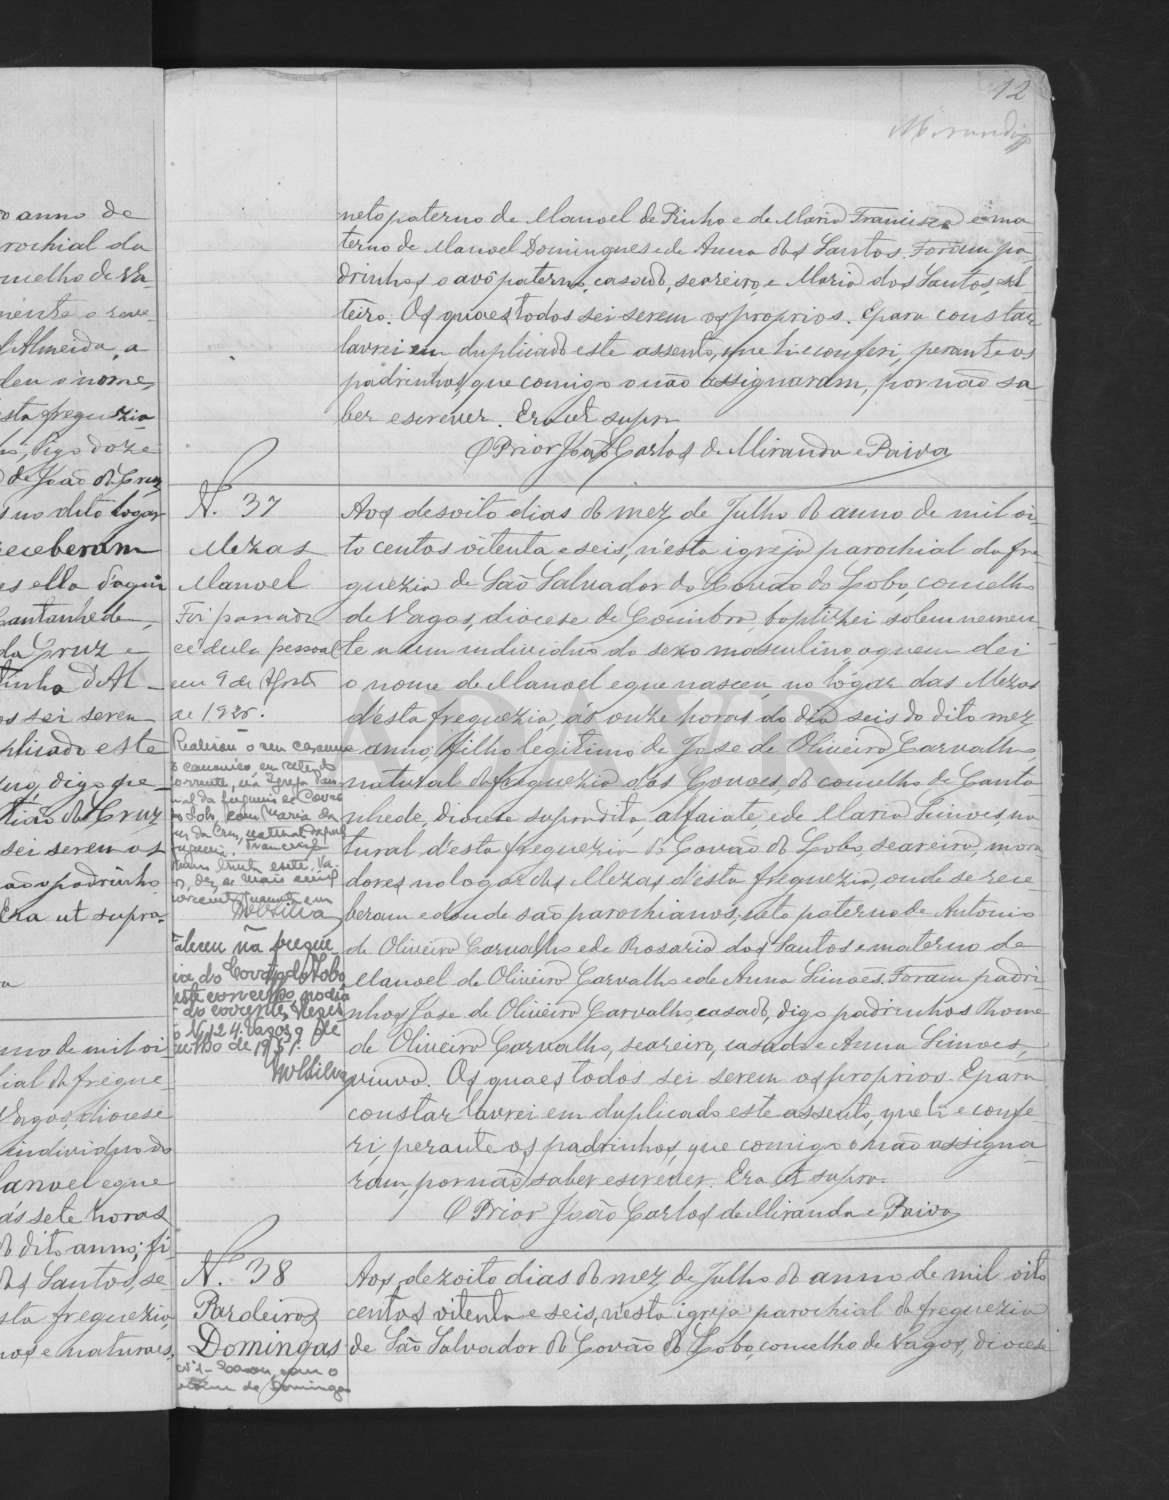 12
Miranda
neto paterno de Manoel de Pinho e de Maria Francisca e ma-
terno de Manoel Domingues e de Anna dos Santos. Foram pa-
drinhos o avô paterno, casado, seareiro, e Maria dos Santos, sol-
teira. Os quaes todos sei serem os proprios. E para constar
lavrei em duplicado este assento, que li e conferi, perante os
padrinhos, que comigo o não assignaram, por não sa-
ber escrever. Era ut supra
O Prior João Carlos de Miranda e Paiva
N. 37
Mezas
Manoel
Foi passada
cedula pessoal
em 9 de Agosto
de 1925.
Realisou o seu casamento
canonico em sete do
corrente, na Igreja Paro-
quial da freguesia de Covão
do Lobo, com Maria da
Cruz, natural daquela
freguesia.
Aos desoito dias do mez de Julho do anno de mil oi-
to centos oitenta e seis, n'esta igreja parochial da fre-
guezia de São Salvador do Covão do Lobo, concelho
de Vagos, diocese de Coimbra, baptizei solemnemen-
te a um individuo do sexo masculino, a quem dei
o nome de Manoel e que nasceu no logar das Mezas
d'esta freguezia, ás onze horas do dia seis do dito mez
e anno, filho legitimo de José de Oliveira Carvalho,
natural da freguezia das Covoes, do concelho de Canta-
nhede, diocese supradita, alfaiate, e de Maria Simoes, na-
tural d'esta freguezia do Covão do Lobo, seareira, mora-
dores no logar das Mezas d'esta freguezia, onde se rece-
beram e donde são parochianos, neto paterno de Antonio
de Oliveira Carvalho e de Rosaria dos Santos e materno de
Manoel de Oliveira Carvalho e de Anna Simoes. Foram padri-
nhos José de Oliveira Carvalho, casado, digo padrinhos Thome
de Oliveira Carvalho, seareiro, casado e Anna Simoes,
viuva. Os quaes todos sei serem os proprios. E para
constar lavrei em duplicado este assento, que li e confe-
ri, perante os padrinhos, que comigo o não assigna-
ram, por não saber escrever. Era ut supra.
O Prior João Carlos de Miranda e Paiva
Faleceu na fregue-
sia do Covão do Lobo,
este concelho, no dia
do corrente. Regist
o N. 124. Vagos, 9 de
julho de 1957.
MSilva
N. 38
Pardeiros
Domingas
Casou com o
nome de Domingas
Aos dezoito dias do mez de Julho do anno de mil oito
centos oitenta e seis, n'esta igreja parochial da freguezia
de São Salvador do Covão do Lobo, concelho de Vagos, diocese
o anno de
rochial da
ncelho de Va-
mente o reve-
d'Almeida, a
deu o nome,
esta freguezia
digo doze
de João da Cruz
no dito logar
receberam
es ella d'aqui
Cantanhede,
da Cruz e
tinho d'Al-
os sei serem
plicado este
digo que
da Cruz
sei serem os
padrinho
Era ut supra.
anno de mil oi
ial da fregue-
Vagos, diocese
individuo do
anoel e que
ás sete horas
do dito anno; fi-
dos Santos, se-
sta freguezia,
nos e naturaes,
ADAVR